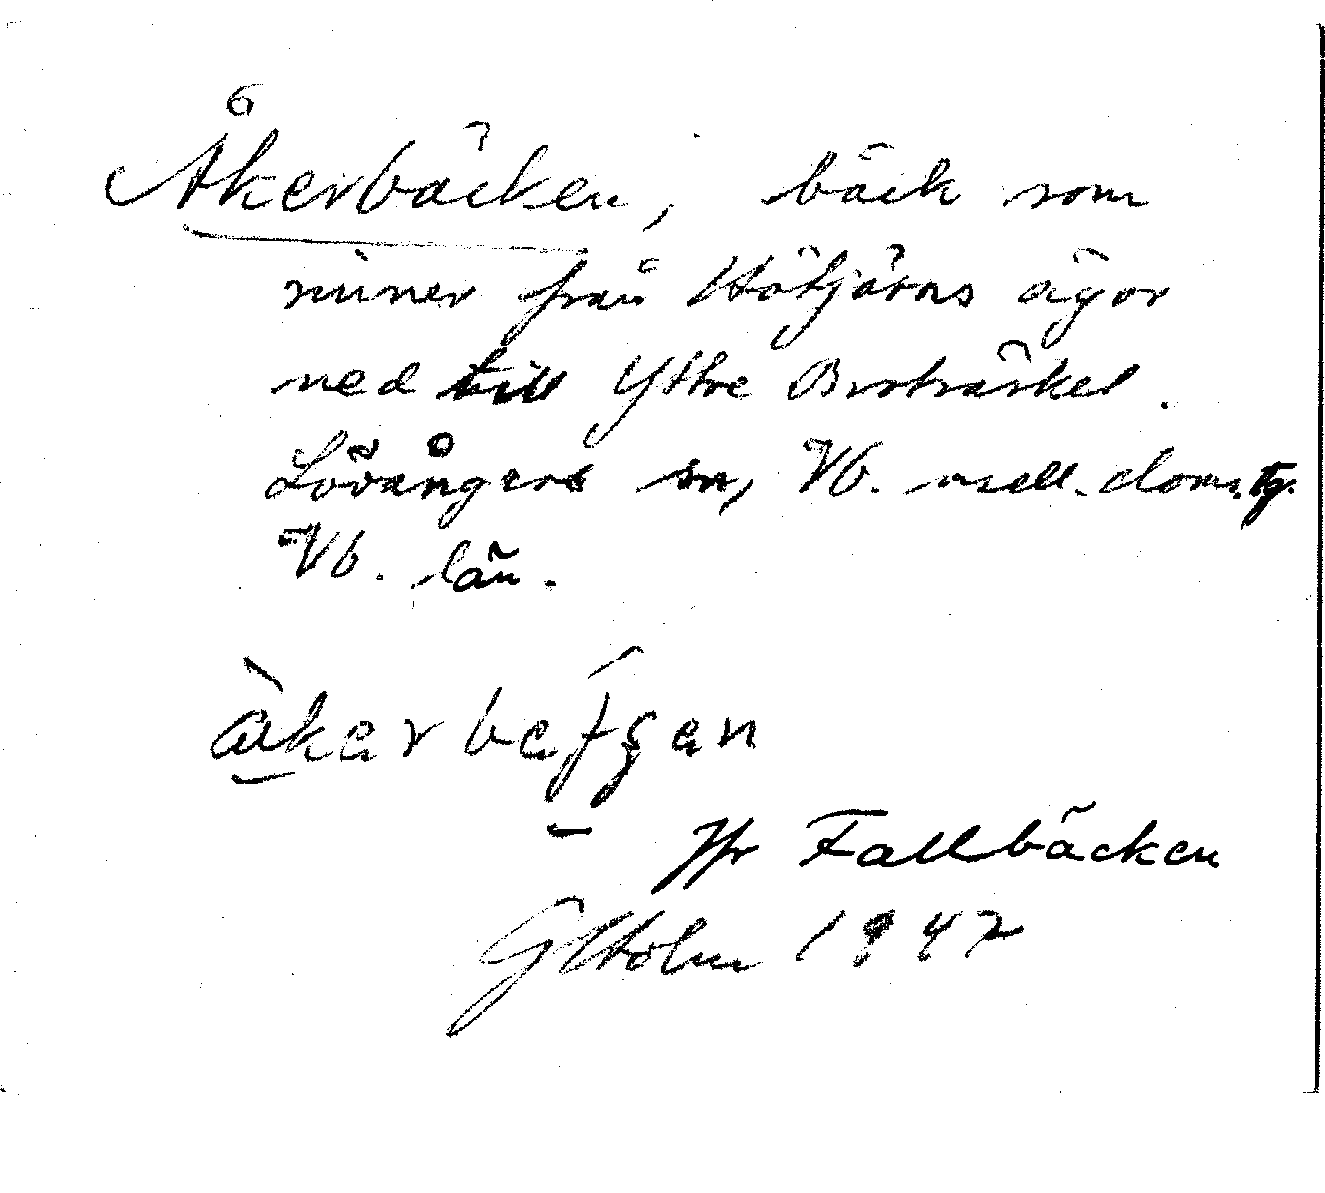 Åkerbäcken, bäck som
rinner från Hötjärns ägor
ned till Yttre Broträsket.
Lövångers sn, Vb. mell. doms.
Vb. län.
Jfr Fallbäcken
GHolm 1947